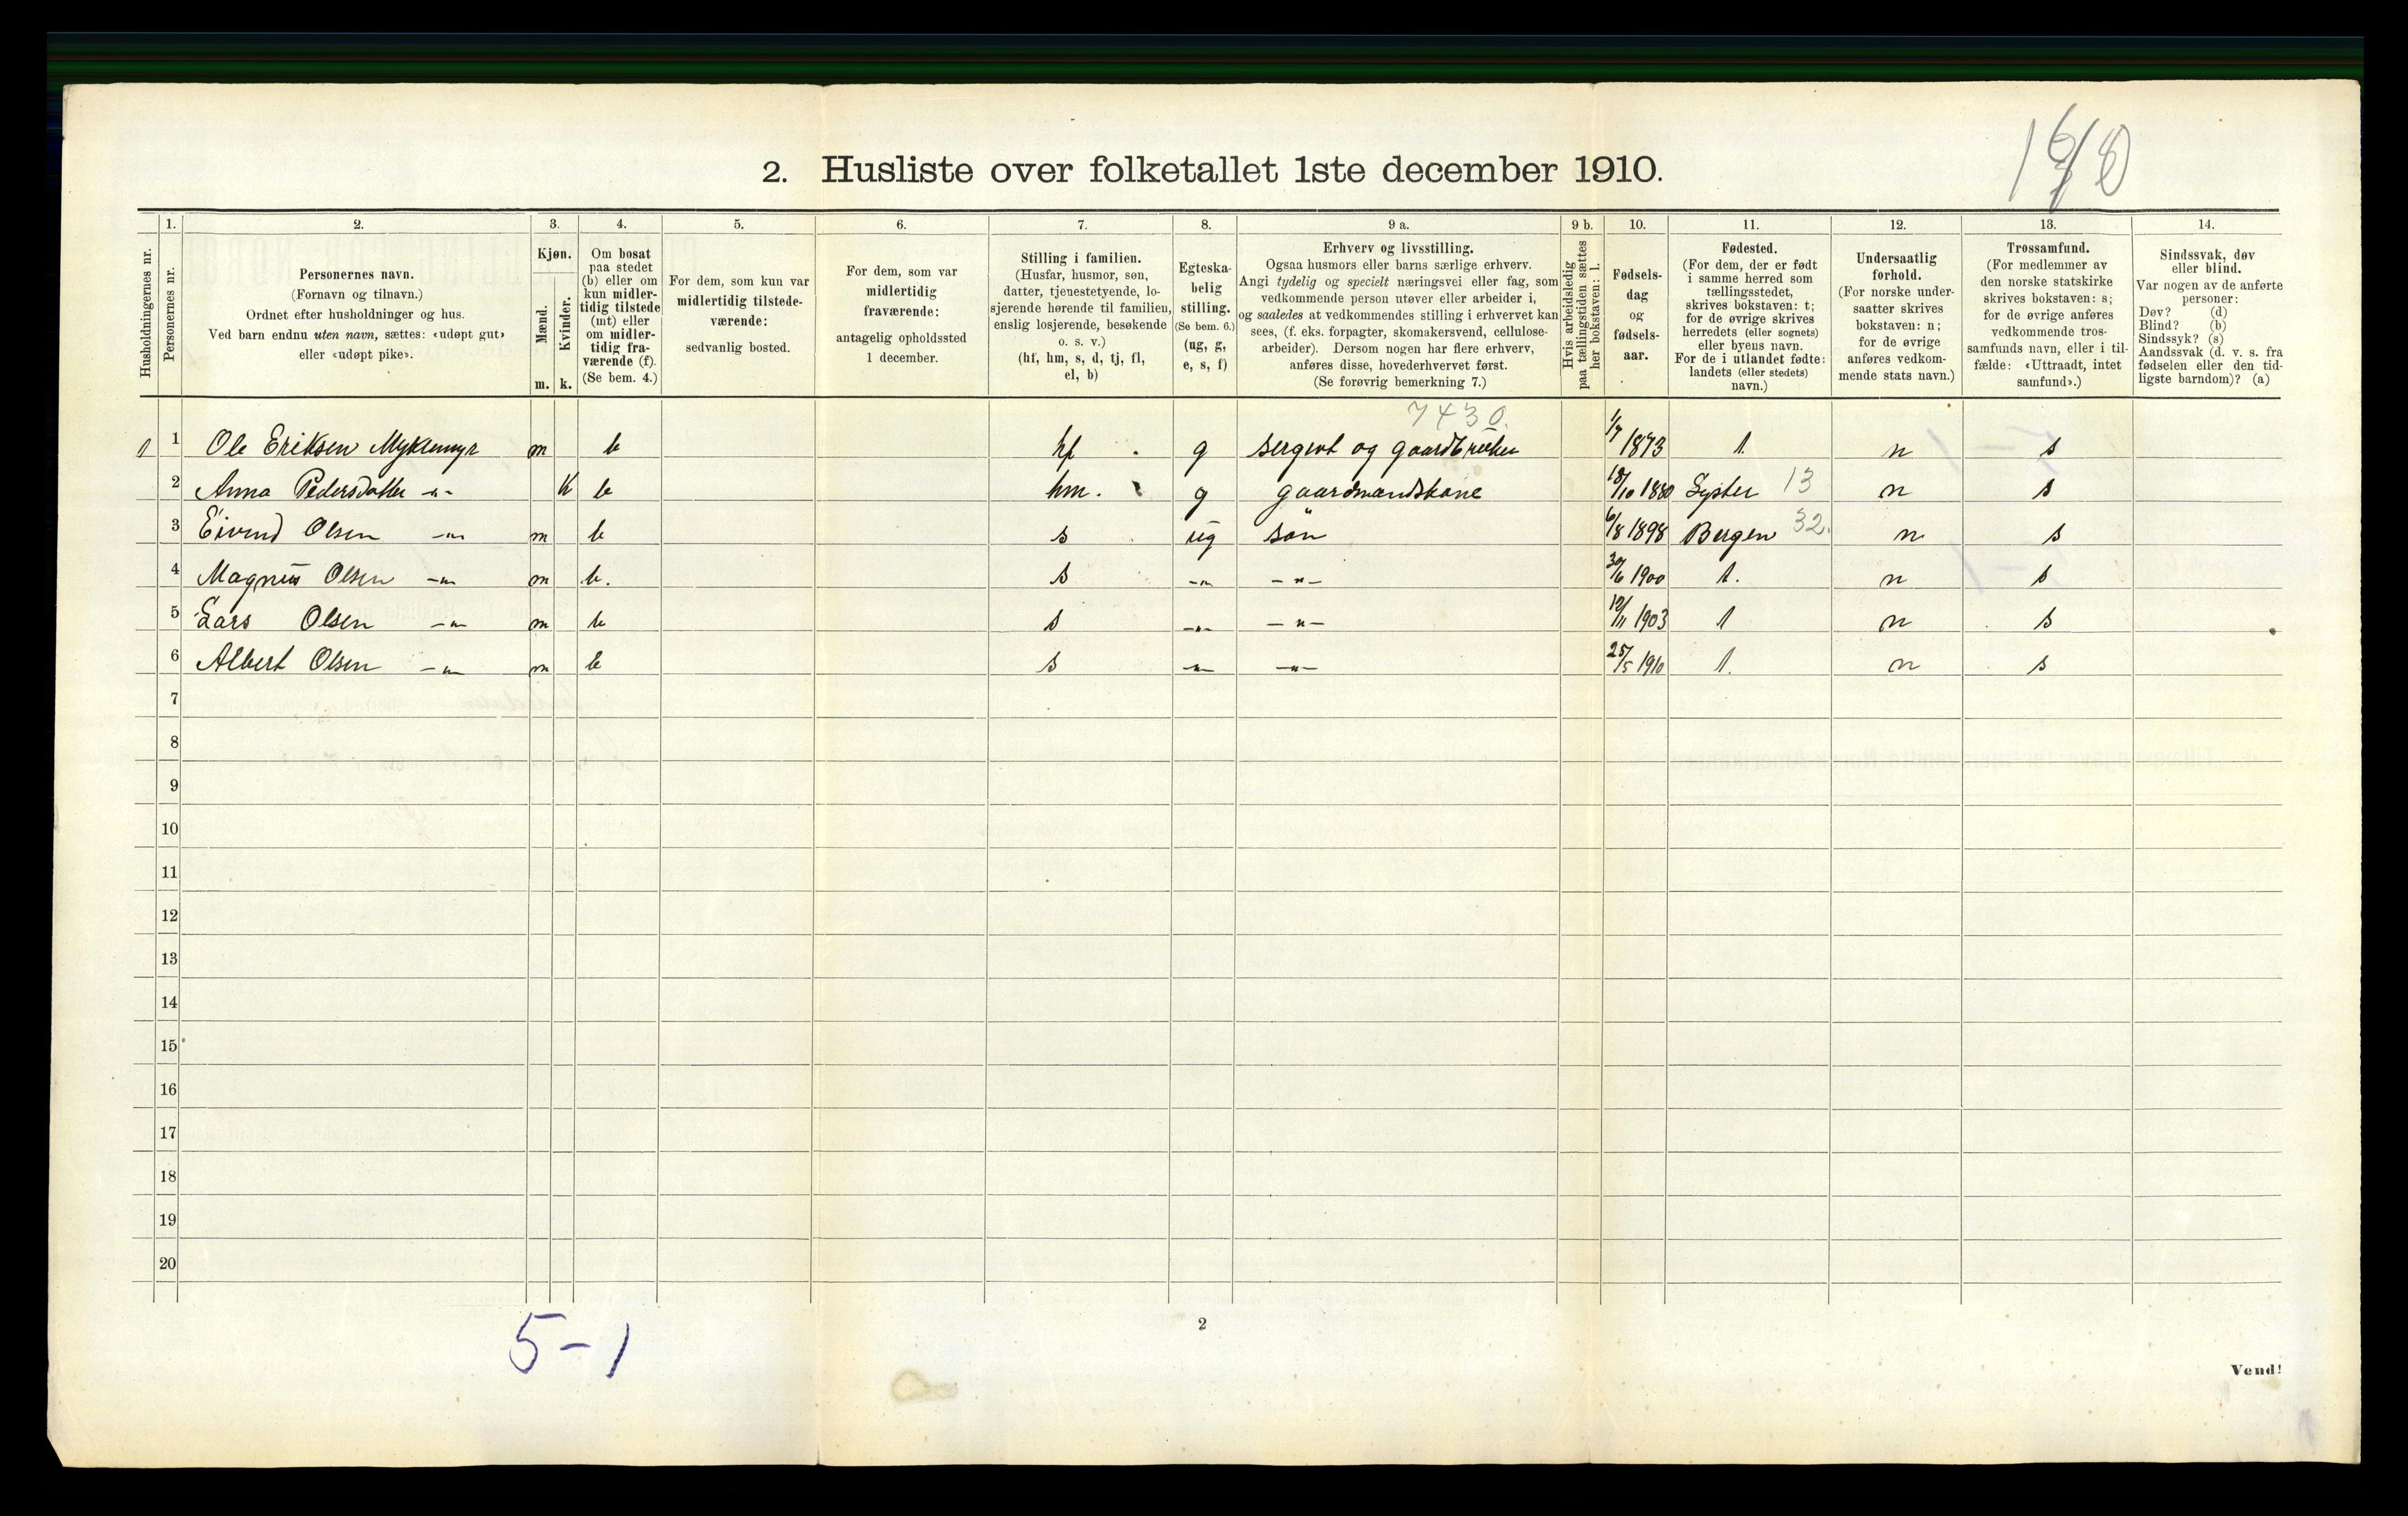 2. Husliste over folketallet 1ste december 1910.
1. 2. 3. 4. 5. 6. 7. 8. 9 a. 9 b. 10. 11. 12. 13. 14.
Husholdningernes nr.
Personernes nr.
Personernes navn.
(Fornavn og tilnavn.)
Ordnet efter husholdninger og hus.
Ved barn endnu uten navn, sættes: «udøpt gut»
eller «udøpt pike».
Kjøn.
Mænd.
Kvinder.
m. k.
Om bosat
paa stedet
(b) eller om
kun midler-
tidig tilstede
(mt) eller
om midler-
tidig fra-
værende (f).
(Se bem. 4.)
For dem, som kun var
midlertidig tilstede-
værende:
sedvanlig bosted.
For dem, som var
midlertidig
fraværende:
antagelig opholdssted
1 december.
Stilling i familien.
(Husfar, husmor, søn,
datter, tjenestetyende, lo-
sjerende hørende til familien,
enslig losjerende, besøkende
o. s. v.)
(hf, hm, s, d, tj, fl,
el, b)
Egteska-
belig
stilling.
(Se bem. 6.)
(ug, g,
e, s, f)
Erhverv og livsstilling.
Ogsaa husmors eller barns særlige erhverv.
Angi tydelig og specielt næringsvei eller fag, som
vedkommende person utøver eller arbeider i,
og saaledes at vedkommendes stilling i erhvervet kan
sees, (f. eks. forpagter, skomakersvend, cellulose-
arbeider). Dersom nogen har flere erhverv,
anføres disse, hovederhvervet først.
(Se forøvrig bemerkning 7.)
Hvis arbeidsledig
paa tællingstiden sættes
her bokstaven: l.
Fødsels-
dag
og
fødsels-
aar.
Fødested.
(For dem, der er født
i samme herred som
tællingsstedet,
skrives bokstaven: t;
for de øvrige skrives
herredets (eller sognets)
eller byens navn.
For de i utlandet fødte:
landets (eller stedets)
navn.)
Undersaatlig
forhold.
(For norske under-
saatter skrives
bokstaven: n;
for de øvrige
anføres vedkom-
mende stats navn.)
Trossamfund.
(For medlemmer av
den norske statskirke
skrives bokstaven: s;
for de øvrige anføres
vedkommende tros-
samfunds navn, eller i til-
fælde: «Uttraadt, intet
samfund».)
Sindssvak, døv
eller blind.
Var nogen av de anførte
personer:
Døv? (d)
Blind? (b)
Sindssyk? (s)
Aandssvak (d. v. s. fra
fødselen eller den tid-
ligste barndom)? (a)
7430.
1 Ole Eriksen Myklemyr m b hf g sergent og gaardbruker 1/7 1873 t. n s
2 Anna Pedersdatter -"- K b hm. g gaardmandskone 18/10 1880 Lyster 13 n s
3 Eivend Olsen -"- m b s ug sön 6/8 1898 Bergen 32. n s
4 Magnus Olsen -"- m b. s -"- -"- 30/6 1900 t. n s
5 Lars Olsen -"- m b s -"- -"- 12/11 1903 t n s
6 Albert Olsen -"- m b s -"- -"- 25/5 1910 t. n s
7
8
9
10
11
12
13
14
15
16
17
18
19
20
5-1
2
Vend!